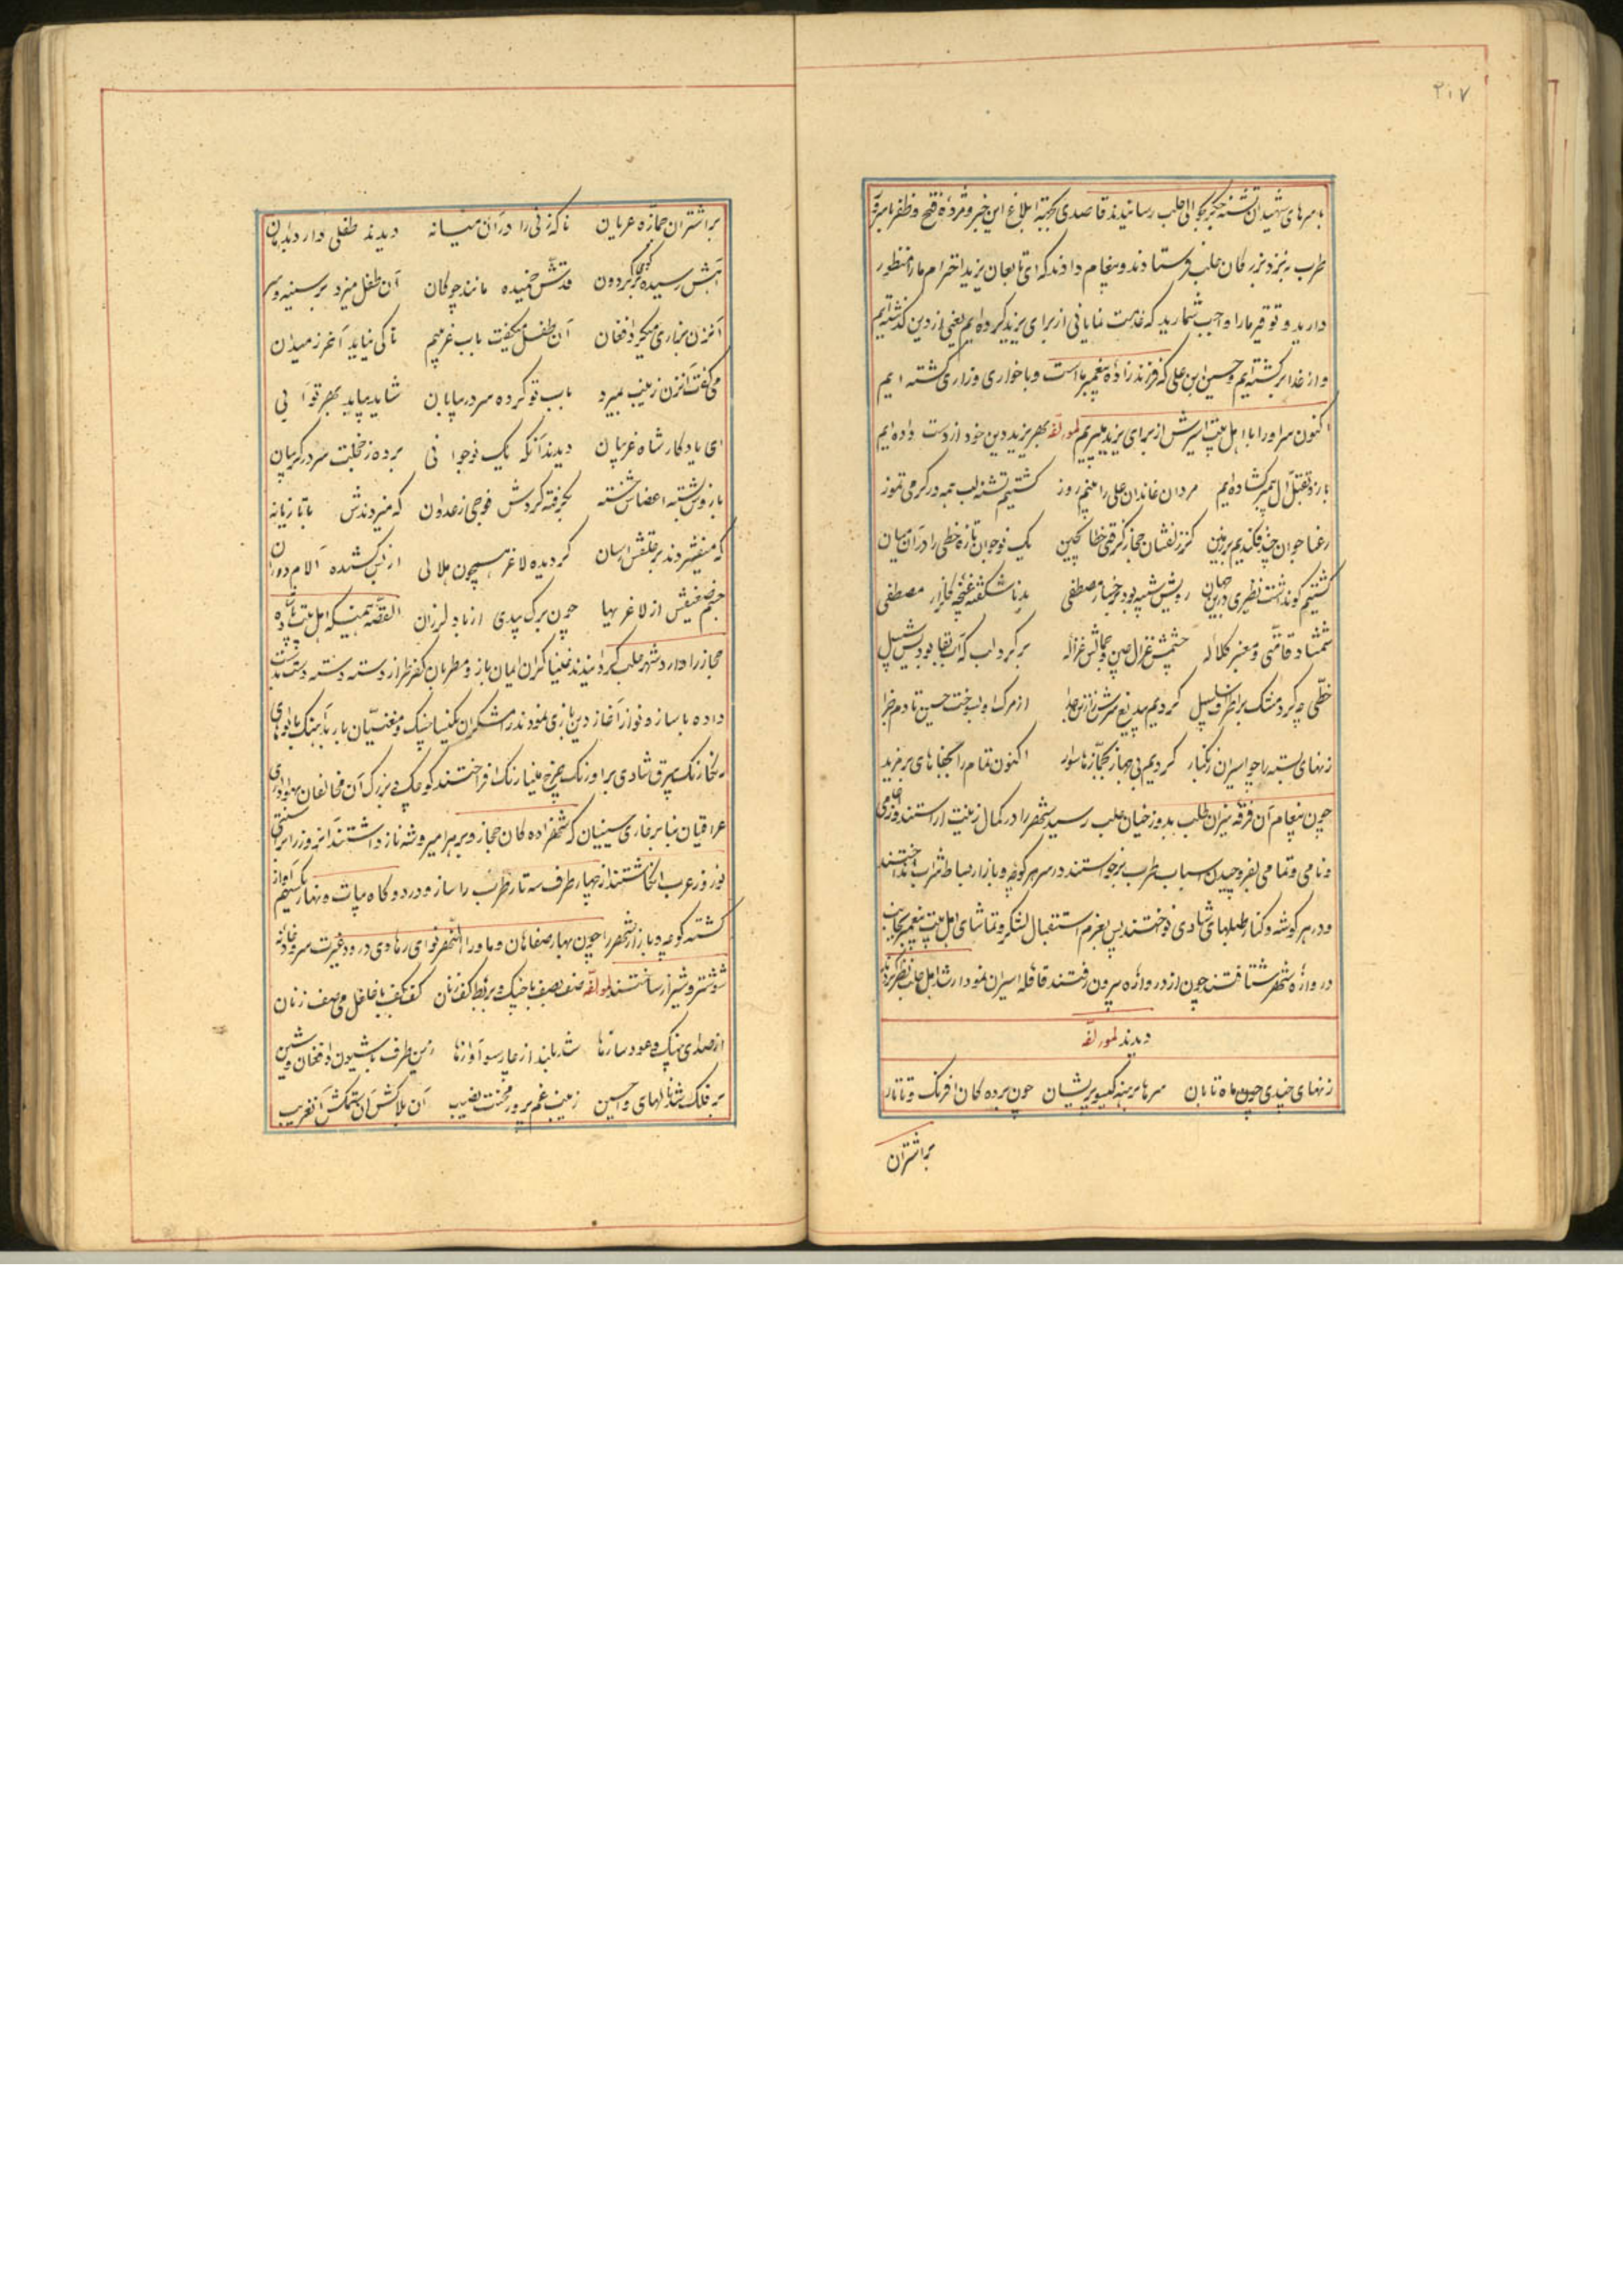 ۲۰۷
با سرهای شهیدان تشنه جگر بحوالی حلب رسانیدند قاصدی بجهته ابلاغ این خبر و مژدهٔ فتح و ظفر با
طرب به نزد بزرکان حلب فرستادند و پیغام دادند که ای تابعان یزید احترام ما را منظور
دارید و توقیر ما را واجب شمارید که خدمت نمایانی از برای یزید کرده‌ایم یعنی از دین کذشته‌ایم
و از خدا برکشته‌ایم و حسین ابن علی که فرزند زادهٔ پیغمبر ما است و با خواری و زاری کشته ایم
اکنون سر او را با اهل بیت اسیرش از برای یزید میبریم لمؤلفه بهر یزید دین خود از دست داده‌ایم
بازو بقتل آل پیمبر کشاده‌ایم مردان خاندان علی را به نیم روز کشتیم تشنه لب همه در کرمی تموز
رعنا جوان چند فکندیم بر زمین کز زلفشان حجاز کرفتی خطا بچین یک نوجوان تازه خطی را در آن میان
کشتیم کو نداشت نظیری درین جهان رویش شبیه بود برخسار مصطفی بد ناشکفته غنچه کلزار مصطفی
شمشاد قامتی و معنبر کلاله چشمش غزال چین و جمالش غزاله بر کرد لب که آب بقا بود سبیل
خطی چو کرد مشک بر اطراف سلسبیل کردیم بیدریغ سرش از تن جدا از مرک او بسوخت حسین تا دم جزا
زنهای بسته را چو اسیران زنکبار کردیم بی جهاز بجمّازها سوار اکنون تمام را بجفاهای بر مزید
چون پیغام آن فرقه نیران طلب بدوزخیان حلب رسید شهر را در کمال زینت اراستند و خاصی
و نامی و تمامی بفرو چیدن اسباب طرب برخواستند در سر هر کوچه و بازار بساط شراب انداختند
و در هر کوشه و کنار طبلهای شادی نوختند پس بعزم استقبال لشکر و تماشای اهل بیت پیغمبر بجانب
دروازهٔ شهر شتافتند چون از دروازه بیرون رفتند قافله اسیران نمودار شد اهل حلب نظر کردند
دیدند لمؤلفه
زنهای خیدی چون ماه تابان سرها برهنه کیسو پریشان چون برده کان افرنک و تاتار
براشتران
براشتران جمازه عریان ناکه زنی را در آن میانه دیدند طفلی دارد بدامان
آهش رسیده بر کردون قدش خمیده مانند چوکان آن طفل میزد بر سینه و سر
آنزن بزاری میکرد افغان آن طفل میکفت باب غریبم تا کی نیاید آخر ز میدان
می‌کفت آنزن زینب بمیرد باب تو کرده سر در بیابان شاید بیاید بهر تو آبی
ای یادکار شاه غریبان دیدند آنکه یک نوجوانی برده ز خجلت سر در کریبان
بازوش بسته اعضاش خسته بکرفته کردش فوجی ز عدوان که میزدندش با تازیانه
که میفشردند بر حلقش اسان کردیده لاغر همچون هلالی از بس کشیده آلام دوران
جسم ضعیفش از لاغریها چون برک بیدی از باد لرزان القصّه همینکه اهل بیت پادشاه
حجاز را وارد شهر حلب کردانیدند خنیاکران ایمان باز و مطربان کفر طراز دسته دسته دست بدست
داده با ساز و نواز آغاز دین بازی نمودند رامشکران نکیسا چنک و مغنیّان باربد آهنک با نواهای
رنکارنک بیرق شادی بر اورنک چرخ مینا رنک افراختند کوچک و بزرک آن مخالفان
عراقیان بنا بر خاری حسینیان که شهزاده کان حجاز و بر هر امیر و شه ناز داشتند آنروز را برابر
نوروز عرب انکاشتند از چهار طرف سه تار طرب را ساز و در دو کاه بیات و نهاز
کشته کوچه و بازار شهر را چون بهار صفاهان و ماورا النهر نوای رهاوی در و در غیرت سرود خانه
شوشتر و شیراز ساختند لمؤلفه صف بصف با چنک و بربط کف زنان کف بکف با خلخل می دف زنان
از صدای چنک و عود سازها شد بلند از چارسو آوازها زین طرف با شیون و افغان و شین
بر فلک شد نالهای وا حسین زینب غم پرور محنت نصیب آن بلاکش آن ستمکش آن غریب